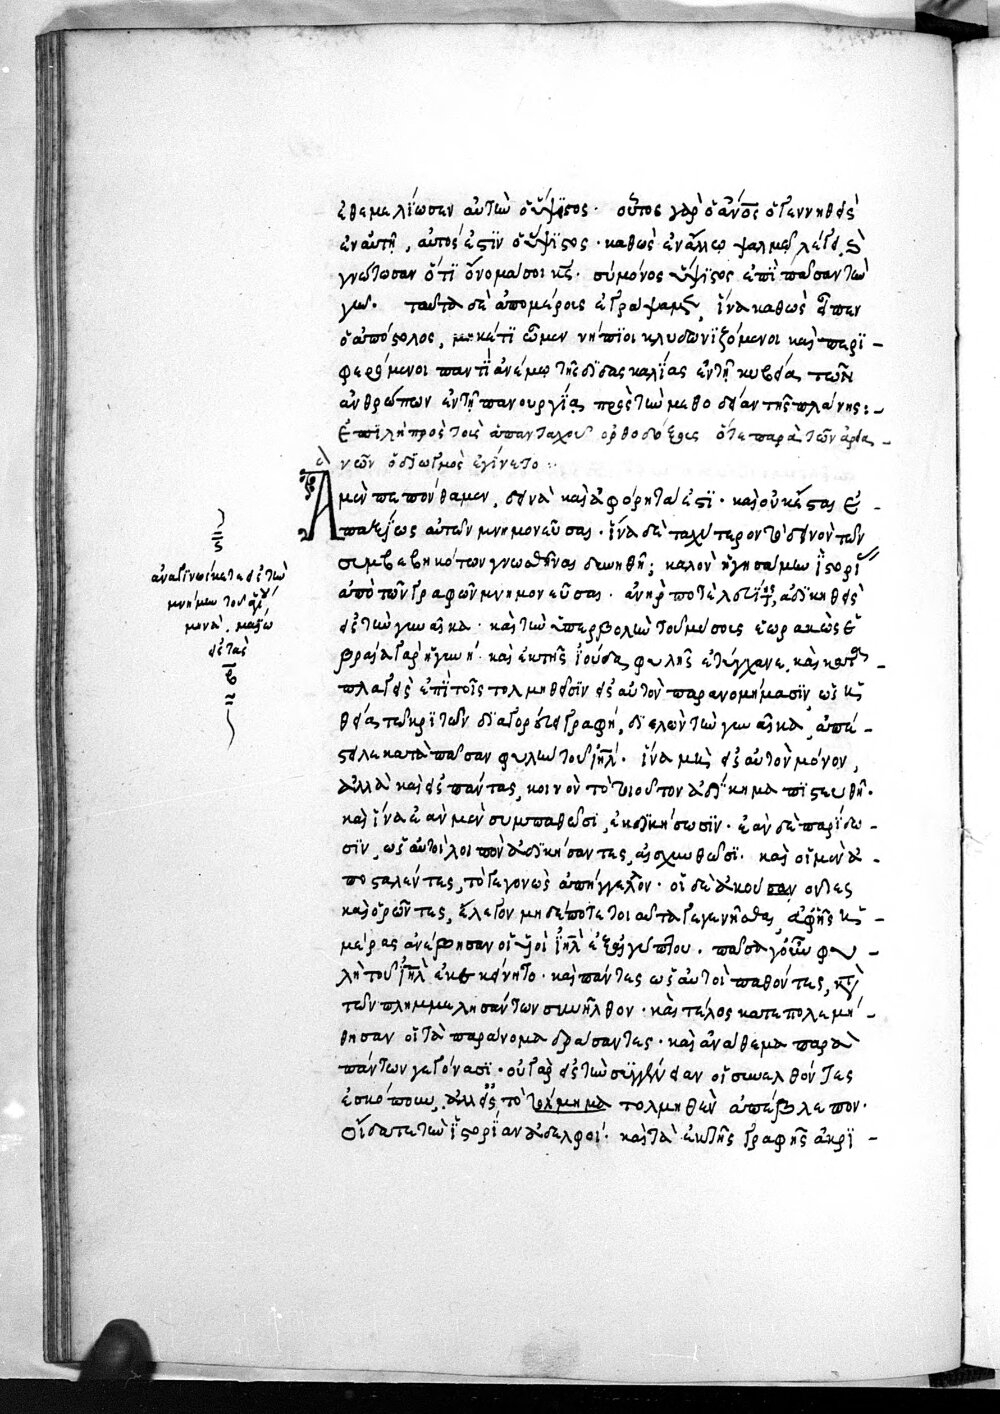 ἐθεμελίωσεν αὐτὴν ὁ ὕψιστος· οὗτος γὰρ ὁ ἄνος ὁ γεννηθεὶς
ἐν αὐτῆ, αὐτός ἐστιν ὁ ὕψιστος· καθὼς ἐν ἄλλω ψαλμῶ λέγει,
γνώτωσαν ὅτι ὄνομά σοι κς· σὺ μόνος ὕψιστος ἐπὶ πᾶσαν τὴν
γῆν. ταῦτα δὲ ἀπομέρους ἐγράψαμεν, ἵνα καθὼς εἶπεν
ὁ ἀπόστολος, μηκέτι ὦμεν νήπιοι κλυδωνιζόμενοι καὶ περι-
φερόμενοι παντὶ ἀνέμω τῆς διδασκαλίας ἐν τῆ κυβεία τῶν
ἀνθρώπων ἐν τῆ πανουργία πρὸς τὴν μεθοδείαν τῆς πλάνης:-
Ἐπιστολὴ πρὸς τοὺς ἁπανταχοῦ ὀρθοδόξους ὅτε παρὰ τῶν ἀρεια-
νῶν ὁ διωγμὸς ἐγίνετο:
Ἃ μὲν πεπόνθαμεν, δεινὰ καὶ ἀφόρητά ἐστι· καὶ οὐκ ἔστιν ἐ-
παξίως αὐτῶν μνημονεῦσαι. ἵνα δὲ ταχύτερον τὸ δεινὸν τῶν
συμβεβηκότων γνωσθῆναι δυνηθῆ; καλὸν ἡγησάμην ἱστορί
ἀπὸ τῶν γραφῶν μνημονεῦσαι. ἀνὴρ ποτὲ λευίτης, ἀδικηθεὶς
εἰς τὴν γυναῖκα· καὶ τὴν ὑπερβολὴν τοῦ μύσους ἑωρακὼς ἑ
βραία γὰρ ἦν γυνή· καὶ ἐκ τῆς ἰούδα φυλῆς ἐτύγχανε, καὶ κατα-
πλαγεὶς ἐπὶ τοῖς τολμηθεῖσιν εἰς αὐτὸν παρανομήμασιν, ὡς ἡ
θεία τῶν κριτῶν διαγορεύει γραφή, διελὼν τὴν γυναῖκα, ἀπέ-
στειλε κατὰ πᾶσαν φυλὴν τοῦ ιηλ. ἵνα μὴ εἰς αὐτὸν μόνον,
ἀλλὰ καὶ εἰς πάντας, κοινὸν τὸ τοιοῦτον ἀδίκημα πιστευθῆ·
καὶ ἵνα ἐὰν μὲν συμπαθῶσι, ἐκδικήσωσιν· ἐὰν δὲ παρίδω-
σιν, ὡς αὐτοὶ λοιπὸν ἀδικήσαντες, αἰσχυνθῶσι. καὶ οἱ μὲν ἀ-
ποσταλέντες, τὸ γεγονὼς ἀπήγγελλον· οἱ δὲ ἀκούσαν οντες
καὶ ὁρῶντες, ἔλεγον μηδεπότε τοιαῦτα γεγενῆσθαι, ἀφ' ἧς ἡ-
μέρας ἀνέβησαν οἱ υἱοὶ ιηλ ἐξ αἰγύπτου. πᾶσα γοῦν φυ-
λὴ τοῦ ιηλ ἐκεκίνητο· καὶ πάντες ὡς αὐτοὶ παθόντες, κατὰ
τῶν πλημμελησάντων συνῆλθον· καὶ τέλος κατεπολεμή-
θησαν οἱ τὰ παράνομα δράσαντες· καὶ ἀνάθεμα παρὰ
πάντων γεγόνασι· οὐ γὰρ εἰς τὴν συγγένειαν οἱ συνελθόντες
ἐσκόπουν, ἀλλ' εἰς τὸ τόλμημα τολμηθὲν ἀπέβλεπον·
οἴδατε τὴν ἱστορίαν ἀδελφοί· καὶ τὰ ἐκ τῆς γραφῆς ἀκρι-
ἀναγινώσκεται εἰς τὴν
μνήμην τοῦ ἁγίου